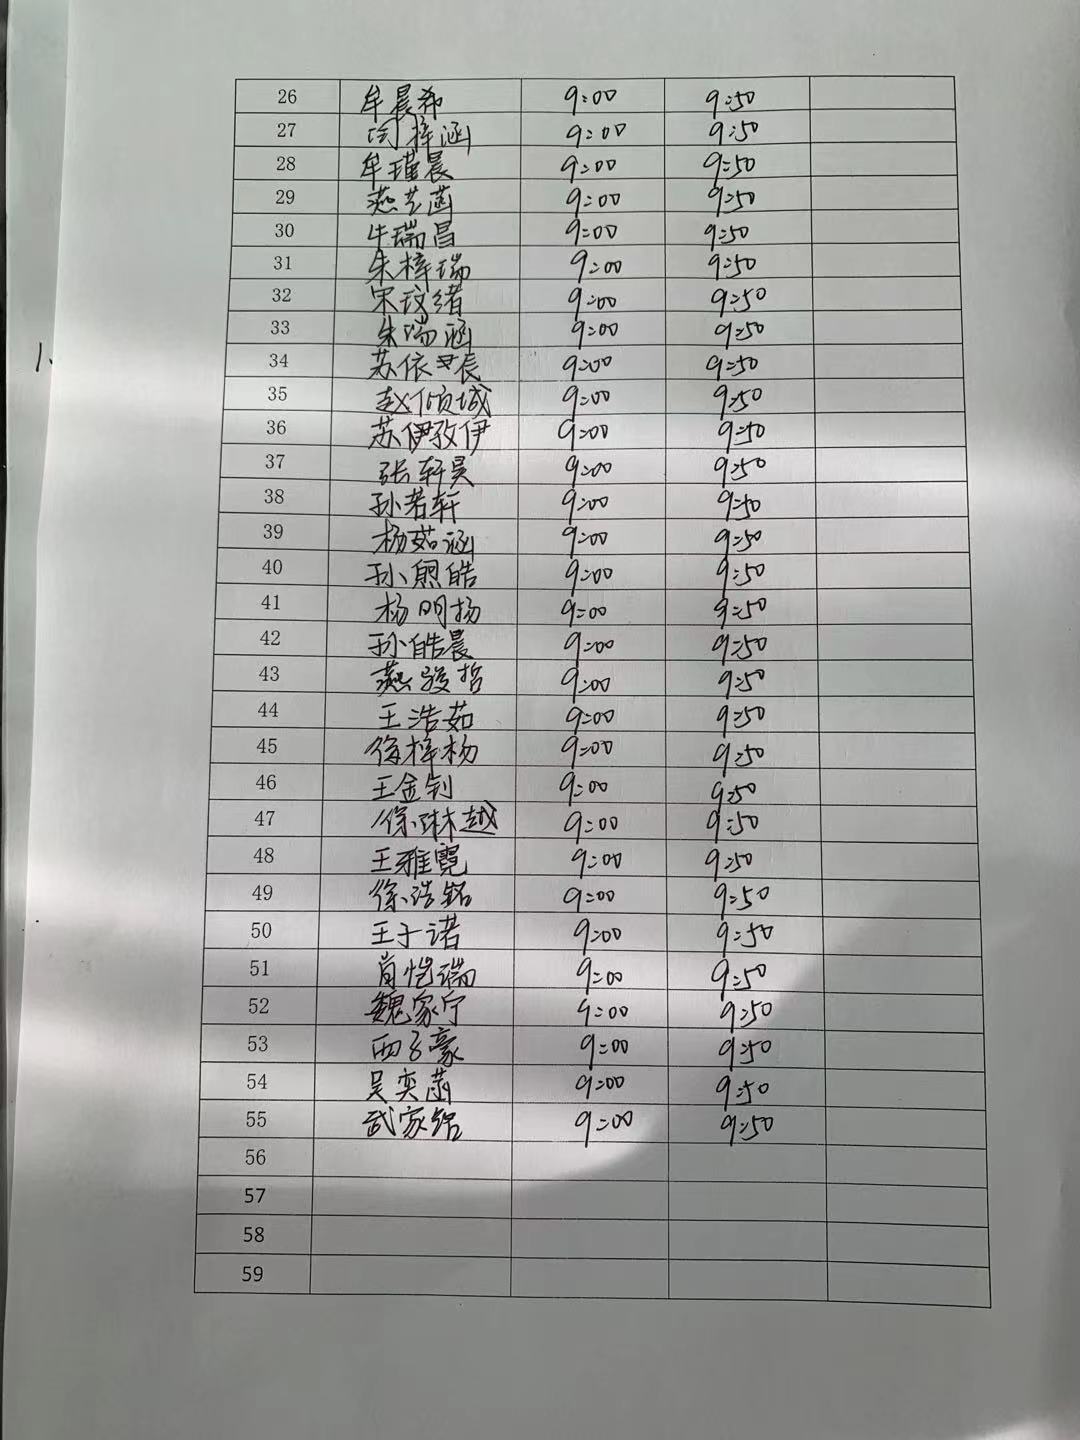 26 牟晨希 9:00 9:50
27 闫梓涵 9:00 9:50
28 牟瑾晨 9:00 9:50
29 燕艺菡 9:00 9:50
30 牛瑞昌 9:00 9:50
31 朱梓瑞 9:00 9:50
32 宋玟绪 9:00 9:50
33 朱瑞涵 9:00 9:50
1、
34 苏依 9:00 9:50
35 赵倾城 9:00 9:50
36 苏伊孜伊 9:00 9:50
37 张轩昊 9:00 9:50
38 孙若轩 9:00 9:50
39 杨茹涵 9:00 9:50
40 孙熙皓 9:00 9:50
41 杨明扬 9:00 9:50
42 孙皓晨 9:00 9:50
43 燕骏哲 9:00 9:50
44 王浩茹 9:00 9:50
45 徐梓杨 9:00 9:50
46 王金钊 9:00 9:50
47 徐琳越 9:00 9:50
48 王雅霓 9:00 9:50
49 徐浩铭 9:00 9:50
50 王子诺 9:00 9:50
51 肖恺瑞 9:00 9:50
52 魏家宁 9:00 9:50
53 西子豪 9:00 9:50
54 吴奕菡 9:00 9:50
55 武家铭 9:00 9:50
56
57
58
59